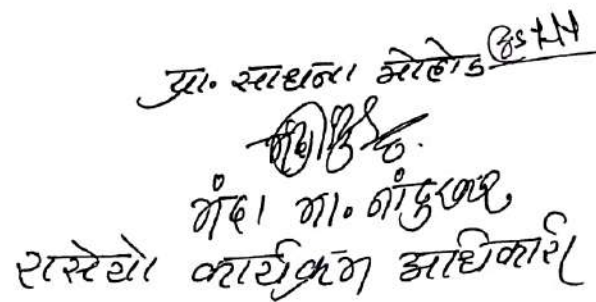 प्रा. साधना मोहोड
मंदा मा. नांदुरकर
रासेयो कार्यक्रम अधिकारी